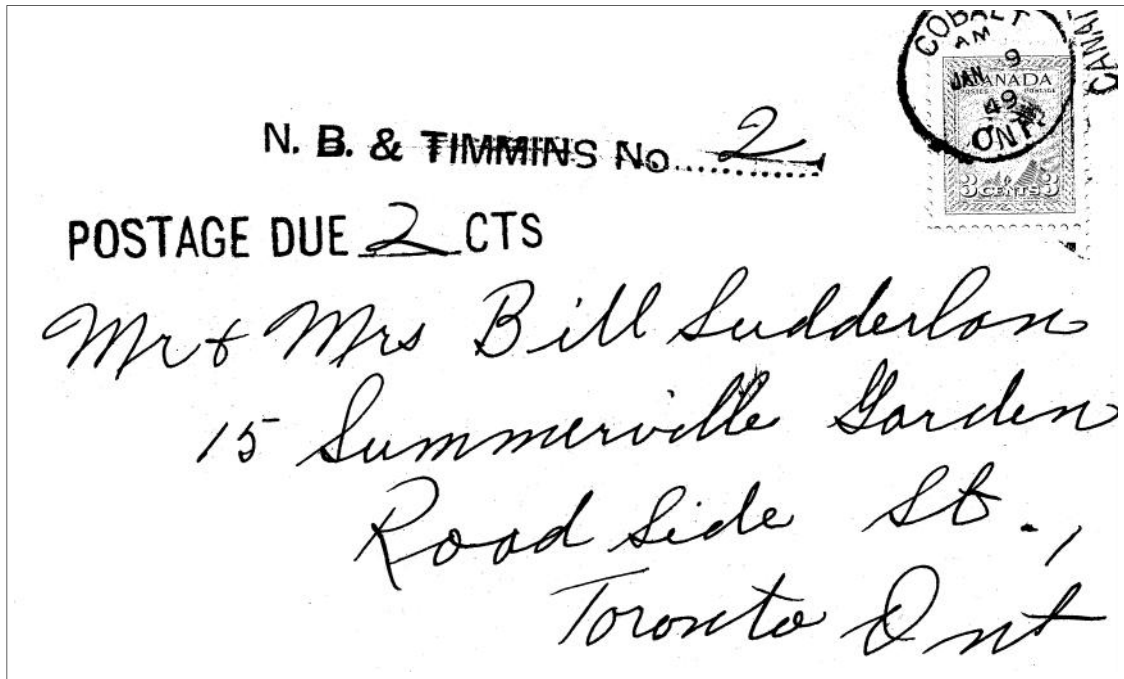 COBALT
AM
JAN 9
49
ONT.
CANADA
POSTES POSTAGE
3 CENTS 3
N. B. & TIMMINS No. 2
POSTAGE DUE 2 CTS
Mr & Mrs Bill Sudderlan
15 Summerville Garden
Road Side St.,
Toronto Ont